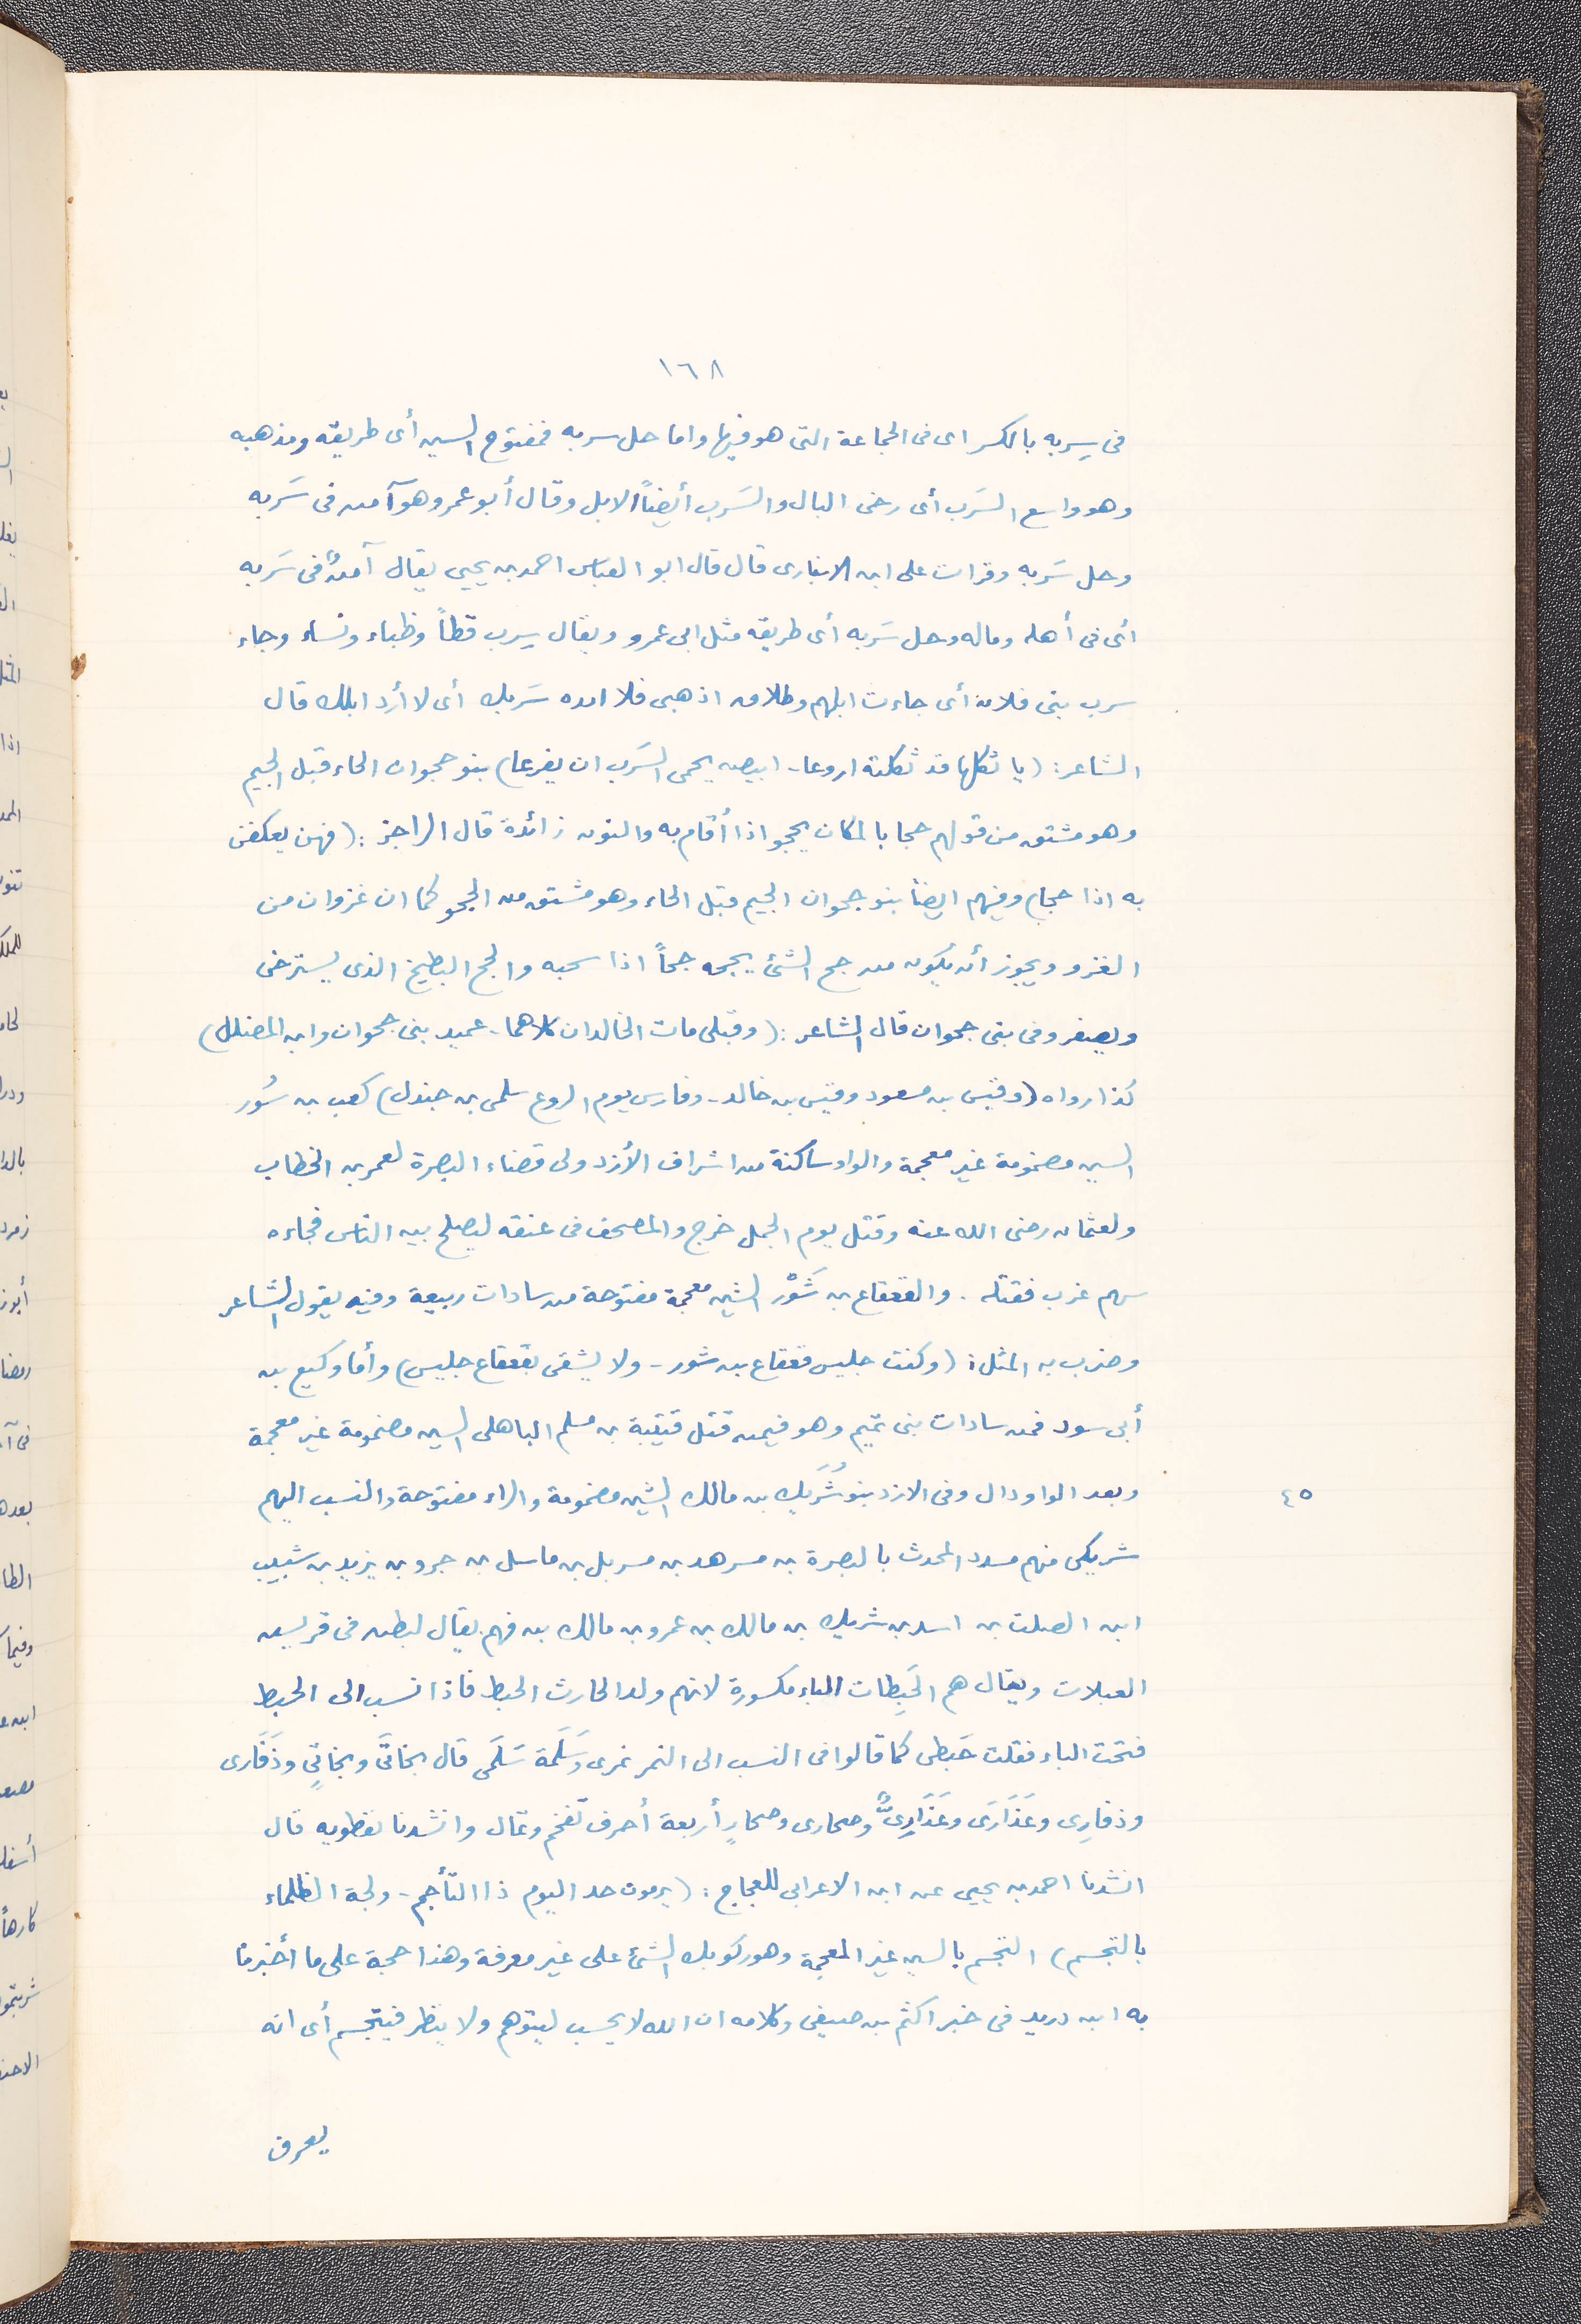 ١٦٨
فى سِربه بالكسر اى فى الجماعة التى هو فيها واما حل سربه فمفتوح السين أى طريقه ومذهبه
وهو واسع السَرَب أى رخى البال والسَرب أيضاً الابل وقال أبو عمرو هو آمن فى سَربه
وحل سَربه وقرات على ابن الانبارى قال قال ابو العباس احمد بن يحيى يقال آمنٌ فى سَربه
أى فى أهله وماله وحل سَربه أى طريقه مثل ابى عمرو ويقال سِرب قطاً وظباء ونساء وجاء
سرب بنى فلان أى جاءت ابلهم وطلاقه اذهبى فلا انده سَربك أى لا أرد ابلك قال
الشاعر: (يا ثكلها قد ثكلته اروعا - ابيض يحمى السَرَب ان يفزعا) بنو حجوان الحاء قبل الجيم
وهو مشتق من قولهم حجا بالمكان يحجو اذا أقام به والنون زائدة قال الراجز: (فهن يعكفن
به اذا حجا) وفيهم ايضاً بنو جحوان الجيم قبل الحاء وهو مشتق من الجحو كما ان غزوان من
الغزو ويجوز أن يكون من جح الشئ يجحه جحاً اذا سحبه والجح البطيخ الذى يسترخى
ويصفر وفى بنى جحوان قال الشاعر: (وقبلى مات الخالدان كلاهما - عميد بنى جحوان وابن المضلل)
كذا رواه (وقيس بن مسعود وقيس بن خالد - وفارس يوم الروع سلمى بن جندل) كعب بن سُور
السين مضمومة غير معجمة والواو ساكنة من اشراف الأزد ولى قضاء البصرة لعمر بن الخطاب
ولعثمان رضى الله عنه وقتل يوم الجمل خرج والمصحف فى عنقه ليصلح بين الناس فجاءه
سهم غرب فقتله. والقعقاع بن شَوْر الشين معجمة مفتوحة من سادات ربيعة وفيه يقول الشاعر
وضرب به المثل: (وكنت جليس قعقاع بن شور - ولا يشقى بقعقاع جليس) وأما وكيع بن
أبى سود فمن سادات بنى تميم وهو فيمن قتل قتيبة بن مسلم الباهلى السين مضمومة غير معجمة
وبعد الواو دال وفى الازد بنو شُرَيك بن مالك الشين مضمومة والراء مفتوحة والنسب اليهم
٤٥
شريكى منهم مسدد المحدث بالبصرة بن مسرهد بن مسربل بن ماسل بن جرو بن يزيد بن شبيب
ابن الصلت بن اسد بن شريك بن مالك بن عمرو بن مالك بن فهم يقال لبطن فى قريش
العبلات ويقال هم الحَبِطات الباء مكسورة لانهم ولد الحارث الحبط فاذا نسب الى الحبط
فتحت الباء فقلت حَبطى كما قالوا فى النسب الى النمر نمرى وَسَلَمة سَلَمى قال بخاتَى وبخاتٍي وذَفَارى
وذفارِى وعَذَارَى وعَذَارِىٌّ وصحارى وصحارٍ أربعة أحرف تفخم وتمال وانشدنا نفطويه قال
انشدنا احمد بن يحيى عن ابن الاعرابى للعجاج: (يرمون حد اليوم ذا التأجم - ولجة الظلماء
بالتجسم) التجسم بالسين غير المعجمة وهو ركوبك الشئ على غير معرفة وهذا حجة على ما أخبرنا
به ابن دريد فى خبر اكثم بن صيفى وكلامه ان الله لا يحسب ليتوهم ولا ينظر فيتجسم أى انه
يعرف